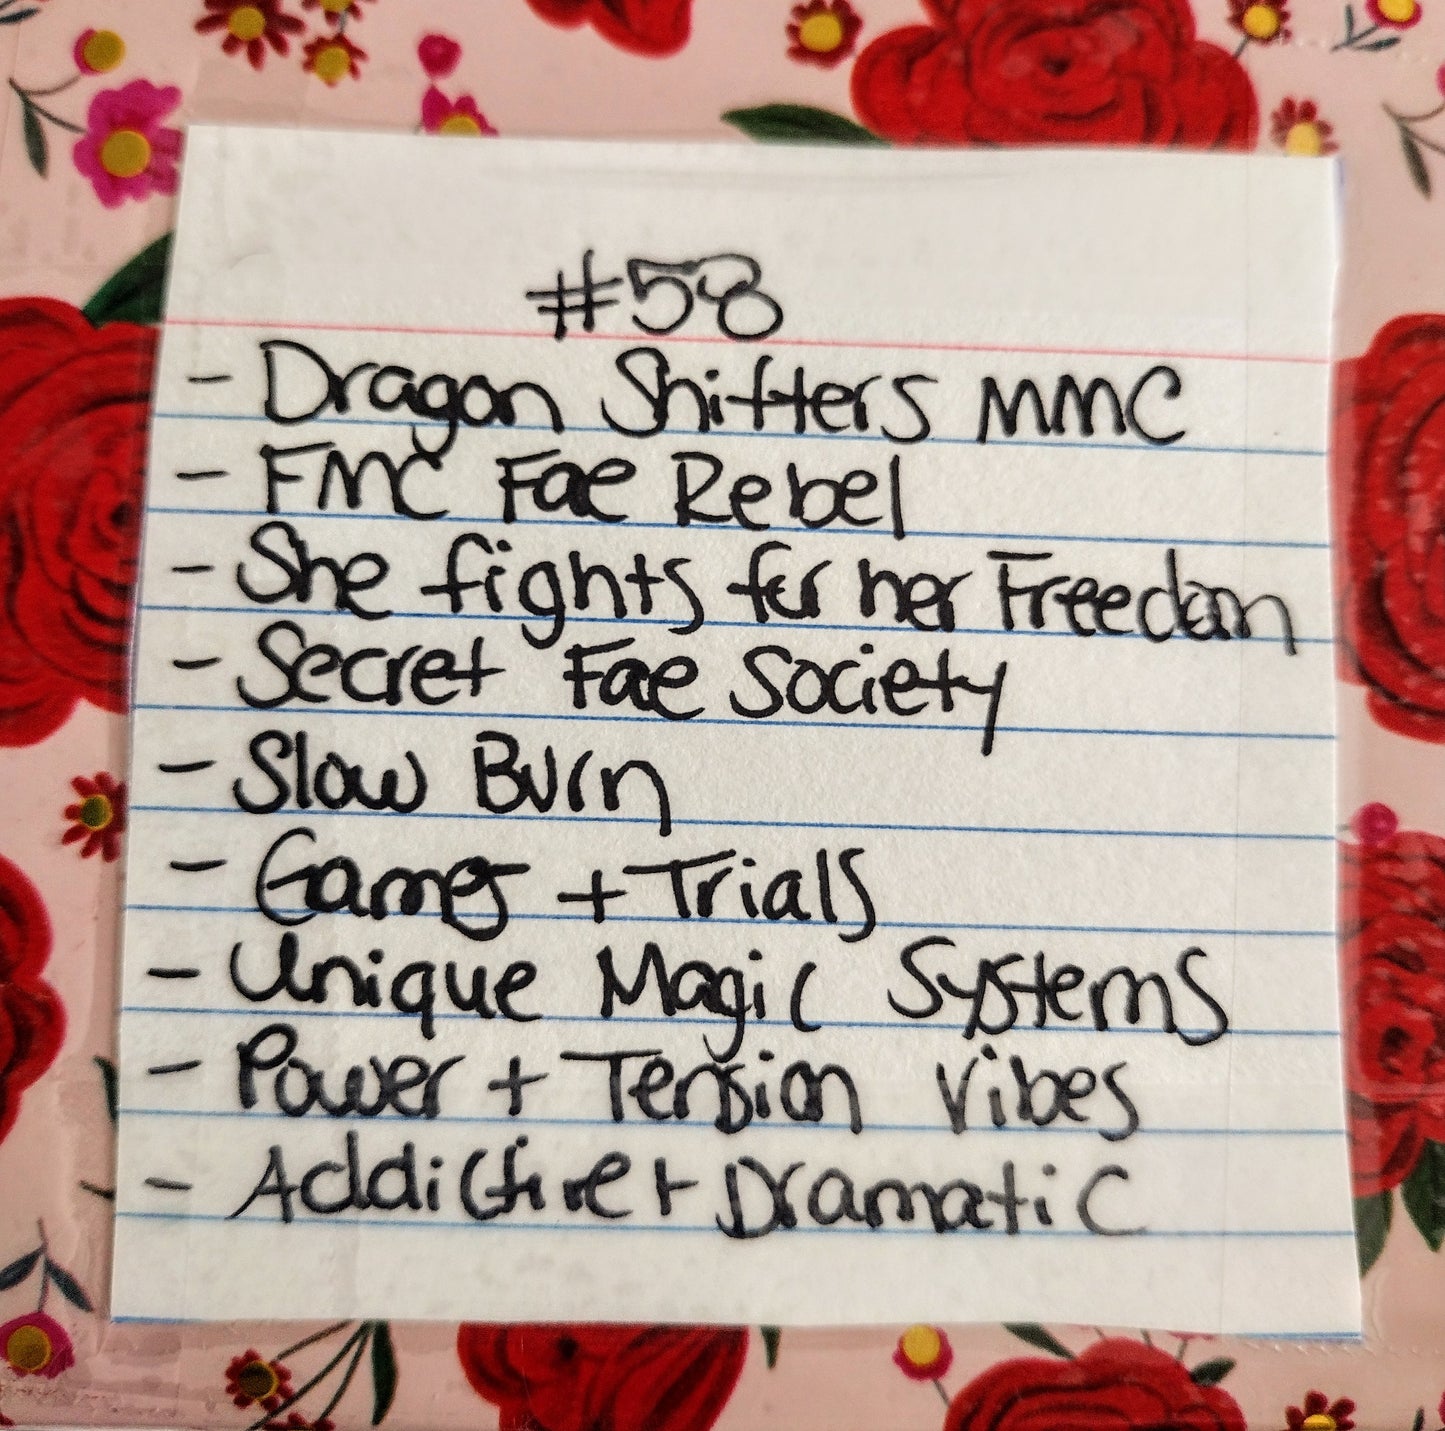 #58
- Dragon Shifters MMC
- FMC Fae Rebel
- She fights for her Freedom
- Secret Fae Society
- Slow Burn
- Games + Trials
- Unique Magic Systems
- Power + Tension Vibes
- Addictive + Dramatic